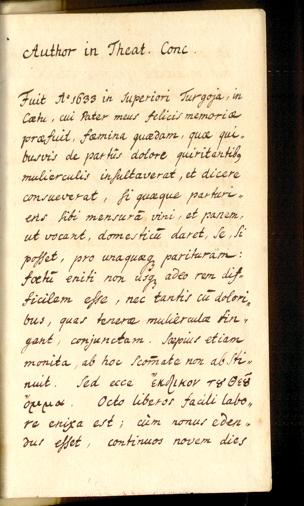 Author in Theat. Conc.
Fuit A° 1633 in Superiori Turgoja, in
Cœtu, cui Pater meus felicis memoriæ
præfuit, fœmina quædam, quæ qui-
busvis de partûs dolore quiritantibꝫ
mulierculis insultaverat, et dicere
consueverat, si quæque parturi-
ens sibi mensurã vini, et panem,
ut vocant, domesticũ daret, se, si
posset, pro unaquaqꝫ parituram:
fœtũ eniti non usqꝫ adeo rem dif-
ficilem esse, nec tantis cũ dolori-
bus, quas teneræ mulierculæ fin-
gant, conjunctam. Sæpius etiam
monita, ab hoc scom̃ate non absti-
nuit. Sed ecce ἔκδικον τȣ Θεȣ͂
ὄμμα. Octo liberos facili labo-
re enixa est; cùm nonus eden-
dus esset, continuos novem dies